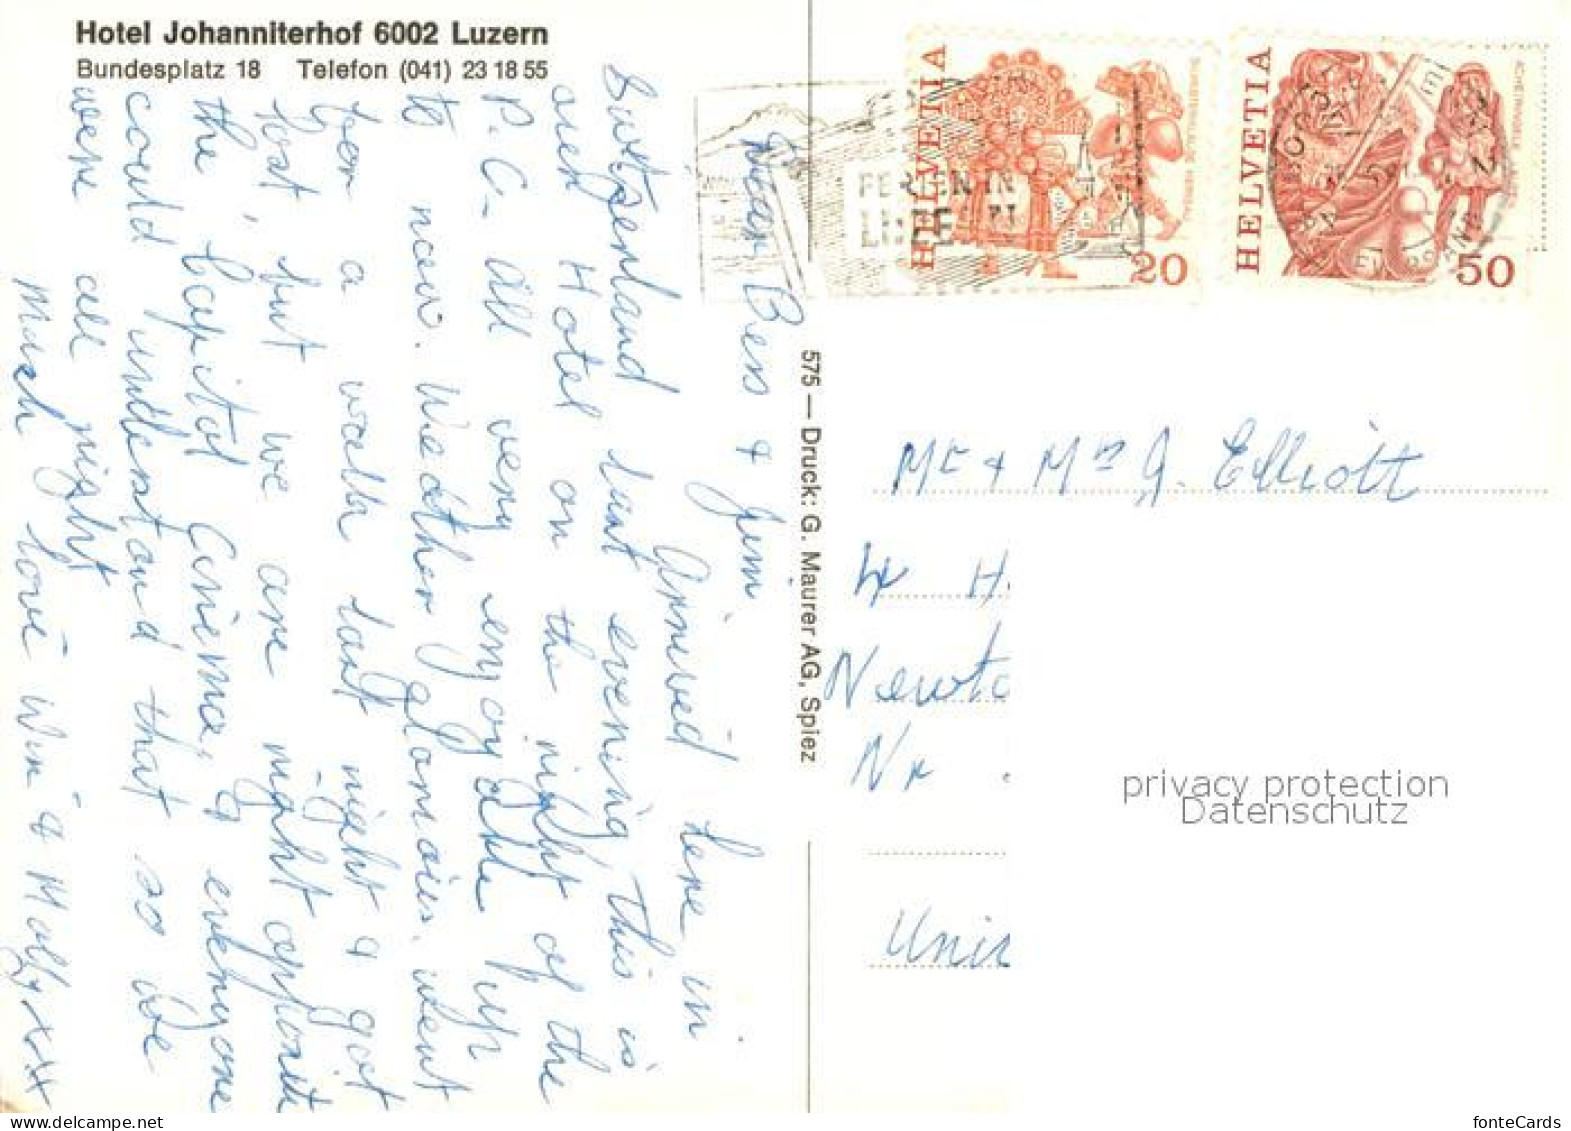 Hotel Johanniterhof 6002 Luzern
Bundesplatz 18 Telefon (041) 23 18 55
Dear Bess & Jim
Arrived here in
Switzerland last evening, this is
our Hotel on the right of the
P.C. All very enjoyable up
to now. Weather glorious. Went
for a walk last night & got
lost, but we are right opposite
the Capitol Cinema, & everyone
could understand that so we
were all right
Much love Win & Molly xxx
575 — Druck: G. Maurer AG, Spiez
HELVETIA
20
HELVETIA
50
FERIEN IN
Mr & Mrs J. Elliott
H
Newto
Nr
Uni
privacy protection
Datenschutz
www.delcampe.net
fonteCards